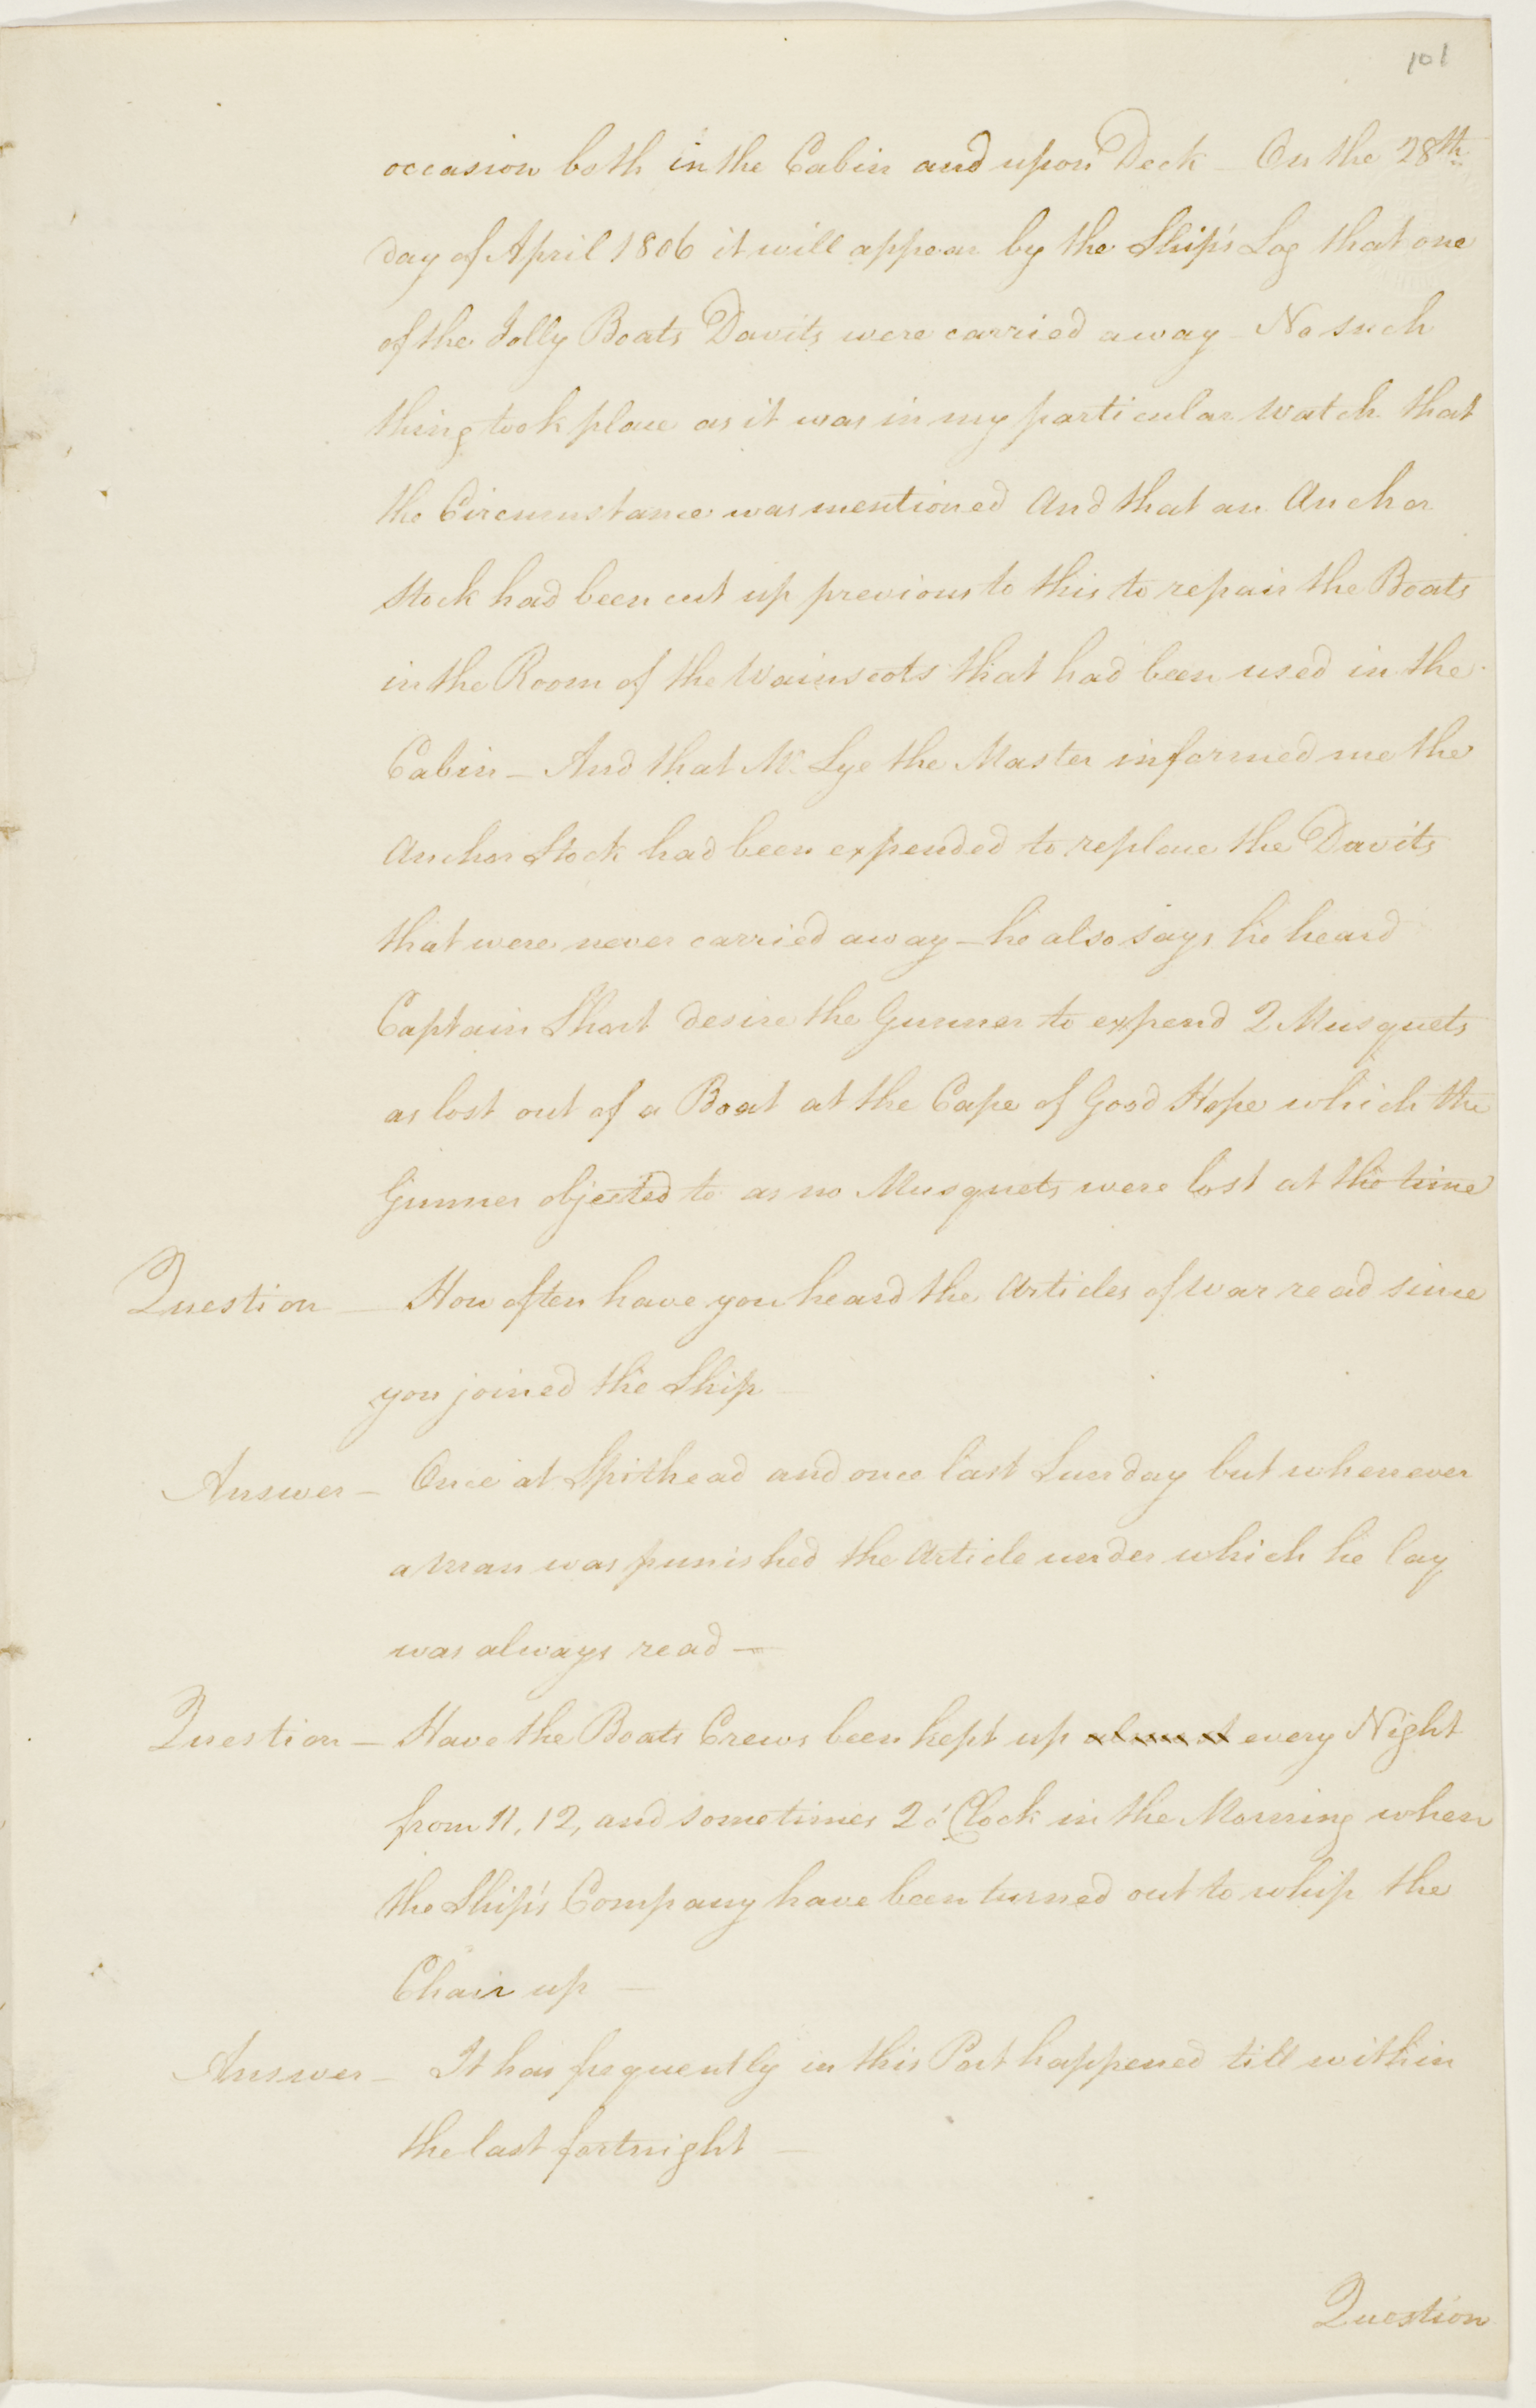 101
occasion both in the Cabin and upon Deck – On the 28th
day of April 1806 it will appear by the Ship's Log that one
of the Jolly Boats Davits were carried away – No such
thing took place as it was in my particular Watch that
the Circumstance was mentioned And that an Anchor
Stock had been cut up previous to this to repair the Boats
in the Room of the Wainscots that had been used in the
Cabin – And that Mr Lye the Master informed me the
Anchor Stock had been expended to replace the Davits
that were never carried away – he also says he heard
Captain Short desire the Gunner to expend 2 Musquets
as lost out of a Boat at the Cape of Good Hope which the
Gunner objected to as no Musquets were lost at the time
Question – How often have you heard the Articles of War read since
you joined the Ship –
Answer – Once at Spithead and once last Sunday but whenever
a Man was punished the Article under which he lay
was always read –
Question – Have the Boats Crews been kept up almost every Night
from 11, 12, and sometimes 2 o'Clock in the Morning when
the Ship's Company have been turned out to whip the
Chair up –
Answer – It has frequently in this Port happened till within
the last fortnight –
Question